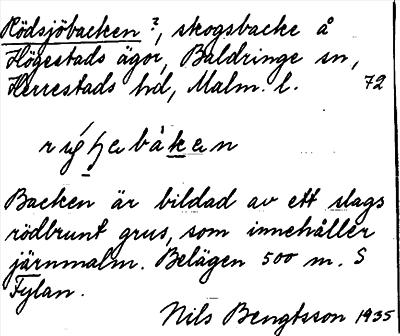 Rödsjöbacken ?, skogsbacke å
Högestads ägor, Baldringe sn,
Herrestads hd, Malm. l. 72
Backen är bildad av ett slags
rödbrunt grus, som innehåller
järnmalm. Belägen 500 m. S
Fylan.
Nils Bengtsson 1935